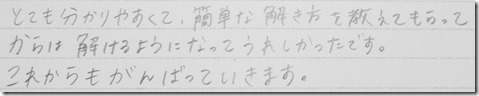 とても分かりやすくて、簡単な解き方を教えてもらって
からは解けるようになってうれしかったです。
これからもがんばっていきます。